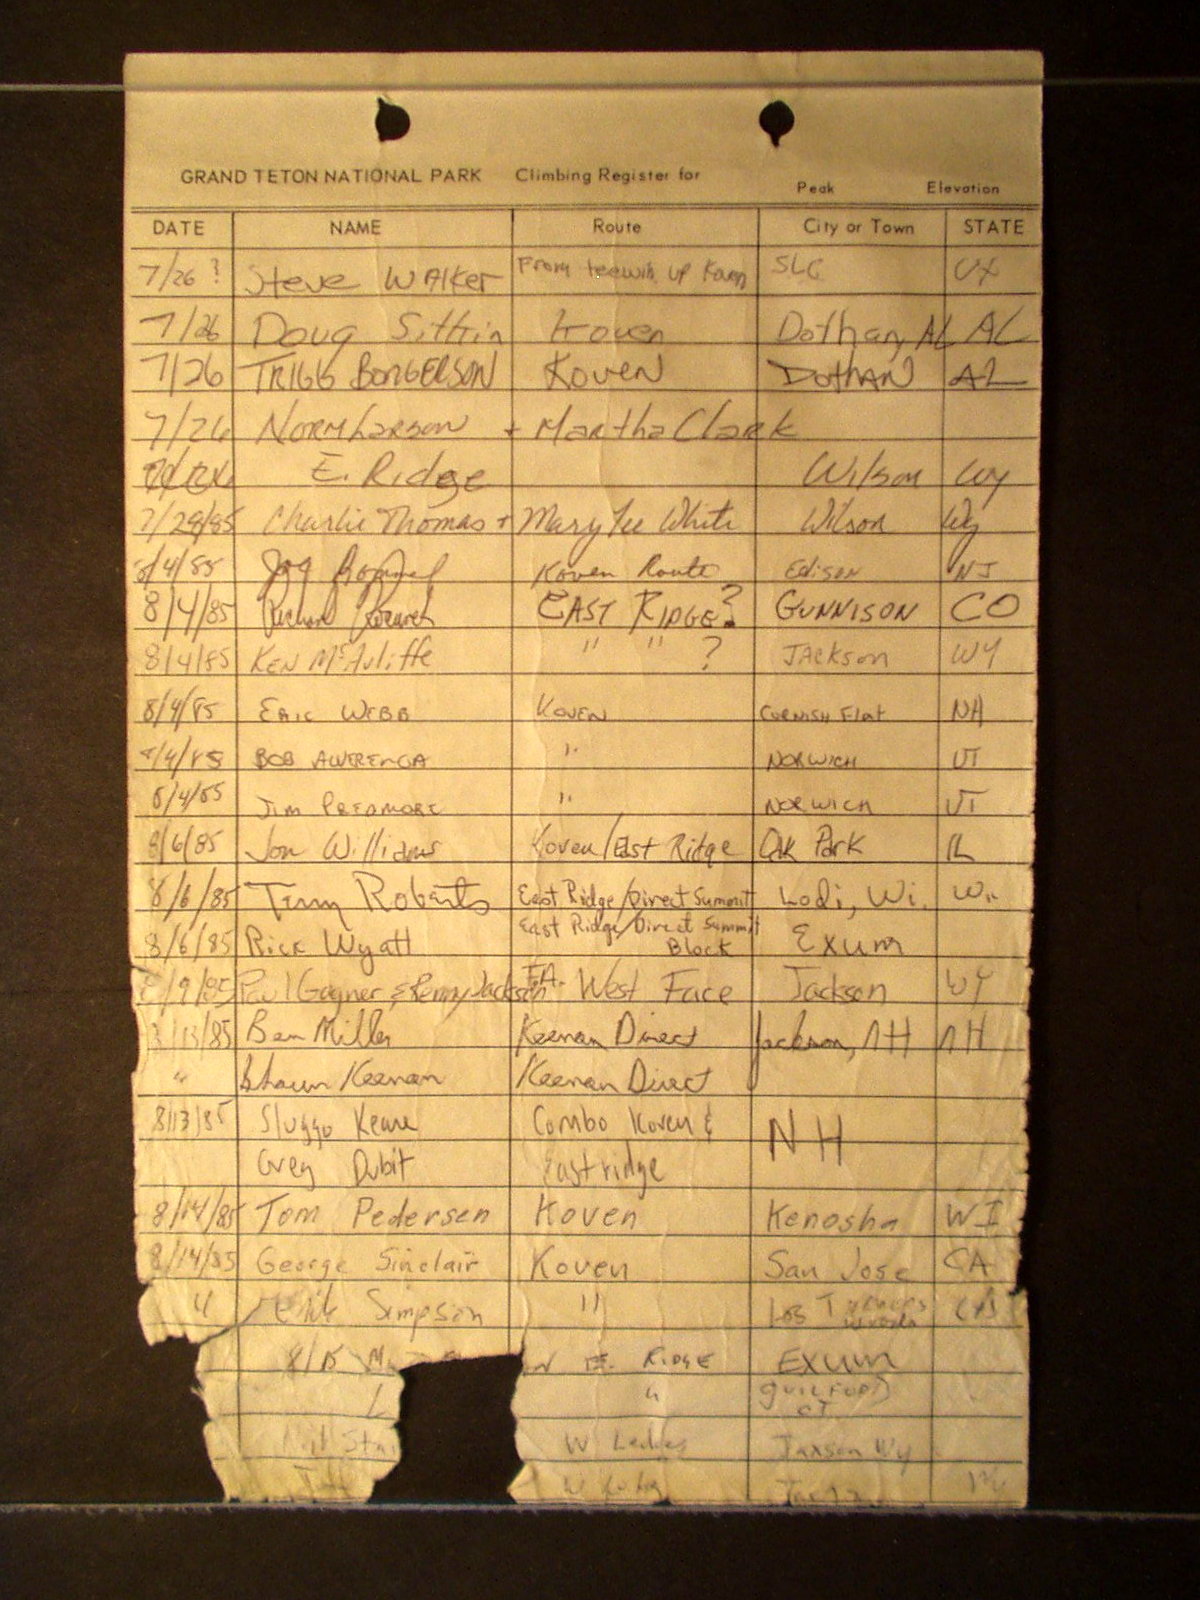 GRAND TETON NATIONAL PARK Climbing Register for Peak Elevation
DATE NAME Route City or Town STATE
7/26 ? Steve Walker From teewin up Koven SLC UT
7/26 Doug Sittin Koven Dothan, AL AL
7/26 TRIGG BORGERSON Koven DOTHAN AL
7/26 Norm Larson + Martha Clark
E. Ridge Wilson WY
7/28/85 Charlie Thomas + Mary Lee White Wilson Wy
8/4/85 Koven Route Edison NJ
8/4/85 Richard EAST RIDGE? GUNNISON CO
8/4/85 KEN McAuliffe " " ? JACKson WY
8/4/85 ERIC WEBB KOVEN CORNISH Flat NH
8/4/85 BOB AWERENGA " NORWICH VT
8/4/85 JIM PREDMORE " NORWICH VT
8/6/85 Jon Williams Koven/East Ridge Oak Park IL
8/6/85 Terry Roberts East Ridge/Direct Summit Lodi, Wi. Wi.
8/6/85 Rick Wyatt East Ridge/Direct Summit Block Exum
8/9/85 Paul Gagner & Renny Jackson F.A. West Face Jackson WY
8/13/85 Ben Miller Keenan Direct Jackson, NH NH
" Shawn Keenan Keenan Direct
8/13/85 Sluggo Keane Combo Koven & NH
Greg Dubit East ridge
8/14/85 Tom Pedersen Koven Kenosha WI
8/14/85 George Sinclair Koven San Jose CA
" Simpson " Los CA
8/15 M E. RIDGE EXUM
L " GUILFORD CT
W Ledges Jaxson Wy
W